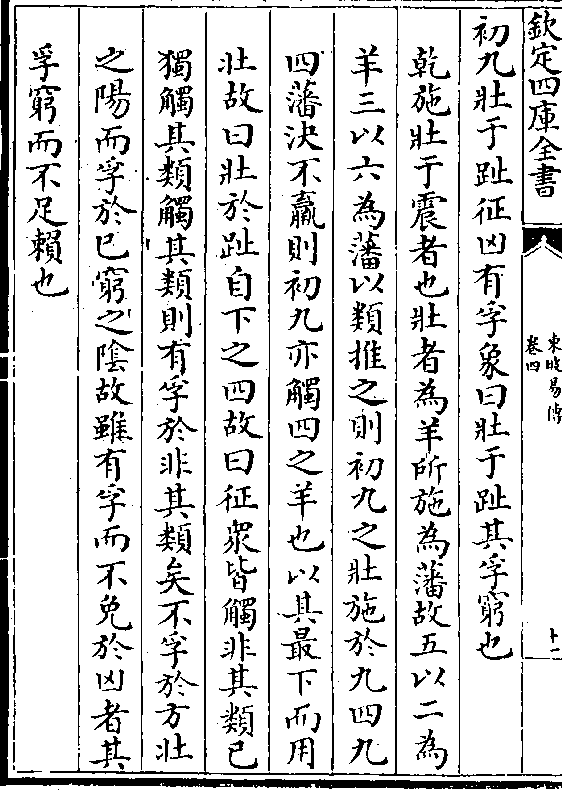 欽定四庫全書
東坡易傳
卷四
十二
初九壯于趾征凶有孚象曰壯于趾其孚窮也
乾施壯于震者也壯者為羊所施為藩故五以二為
羊三以六為藩以類推之則初九之壯施於九四九
四藩決不羸則初九亦觸四之羊也以其最下而用
壯故曰壯於趾自下之四故曰征衆皆觸非其類已
獨觸其類觸其類則有孚於非其類矣不孚於方壯
之陽而孚於已窮之隂故雖有孚而不免於凶者其
孚窮而不足賴也